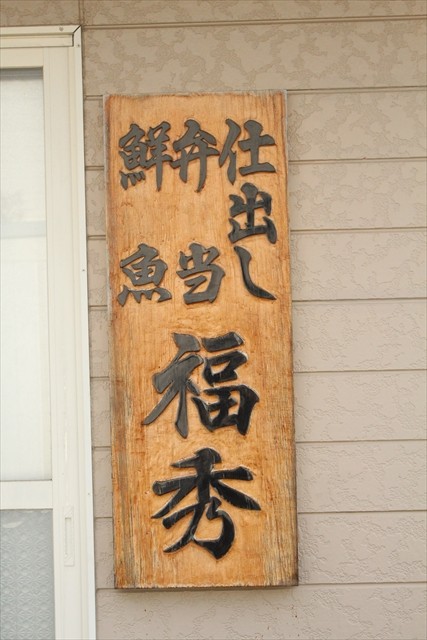 仕出し
弁当
鮮魚
福秀